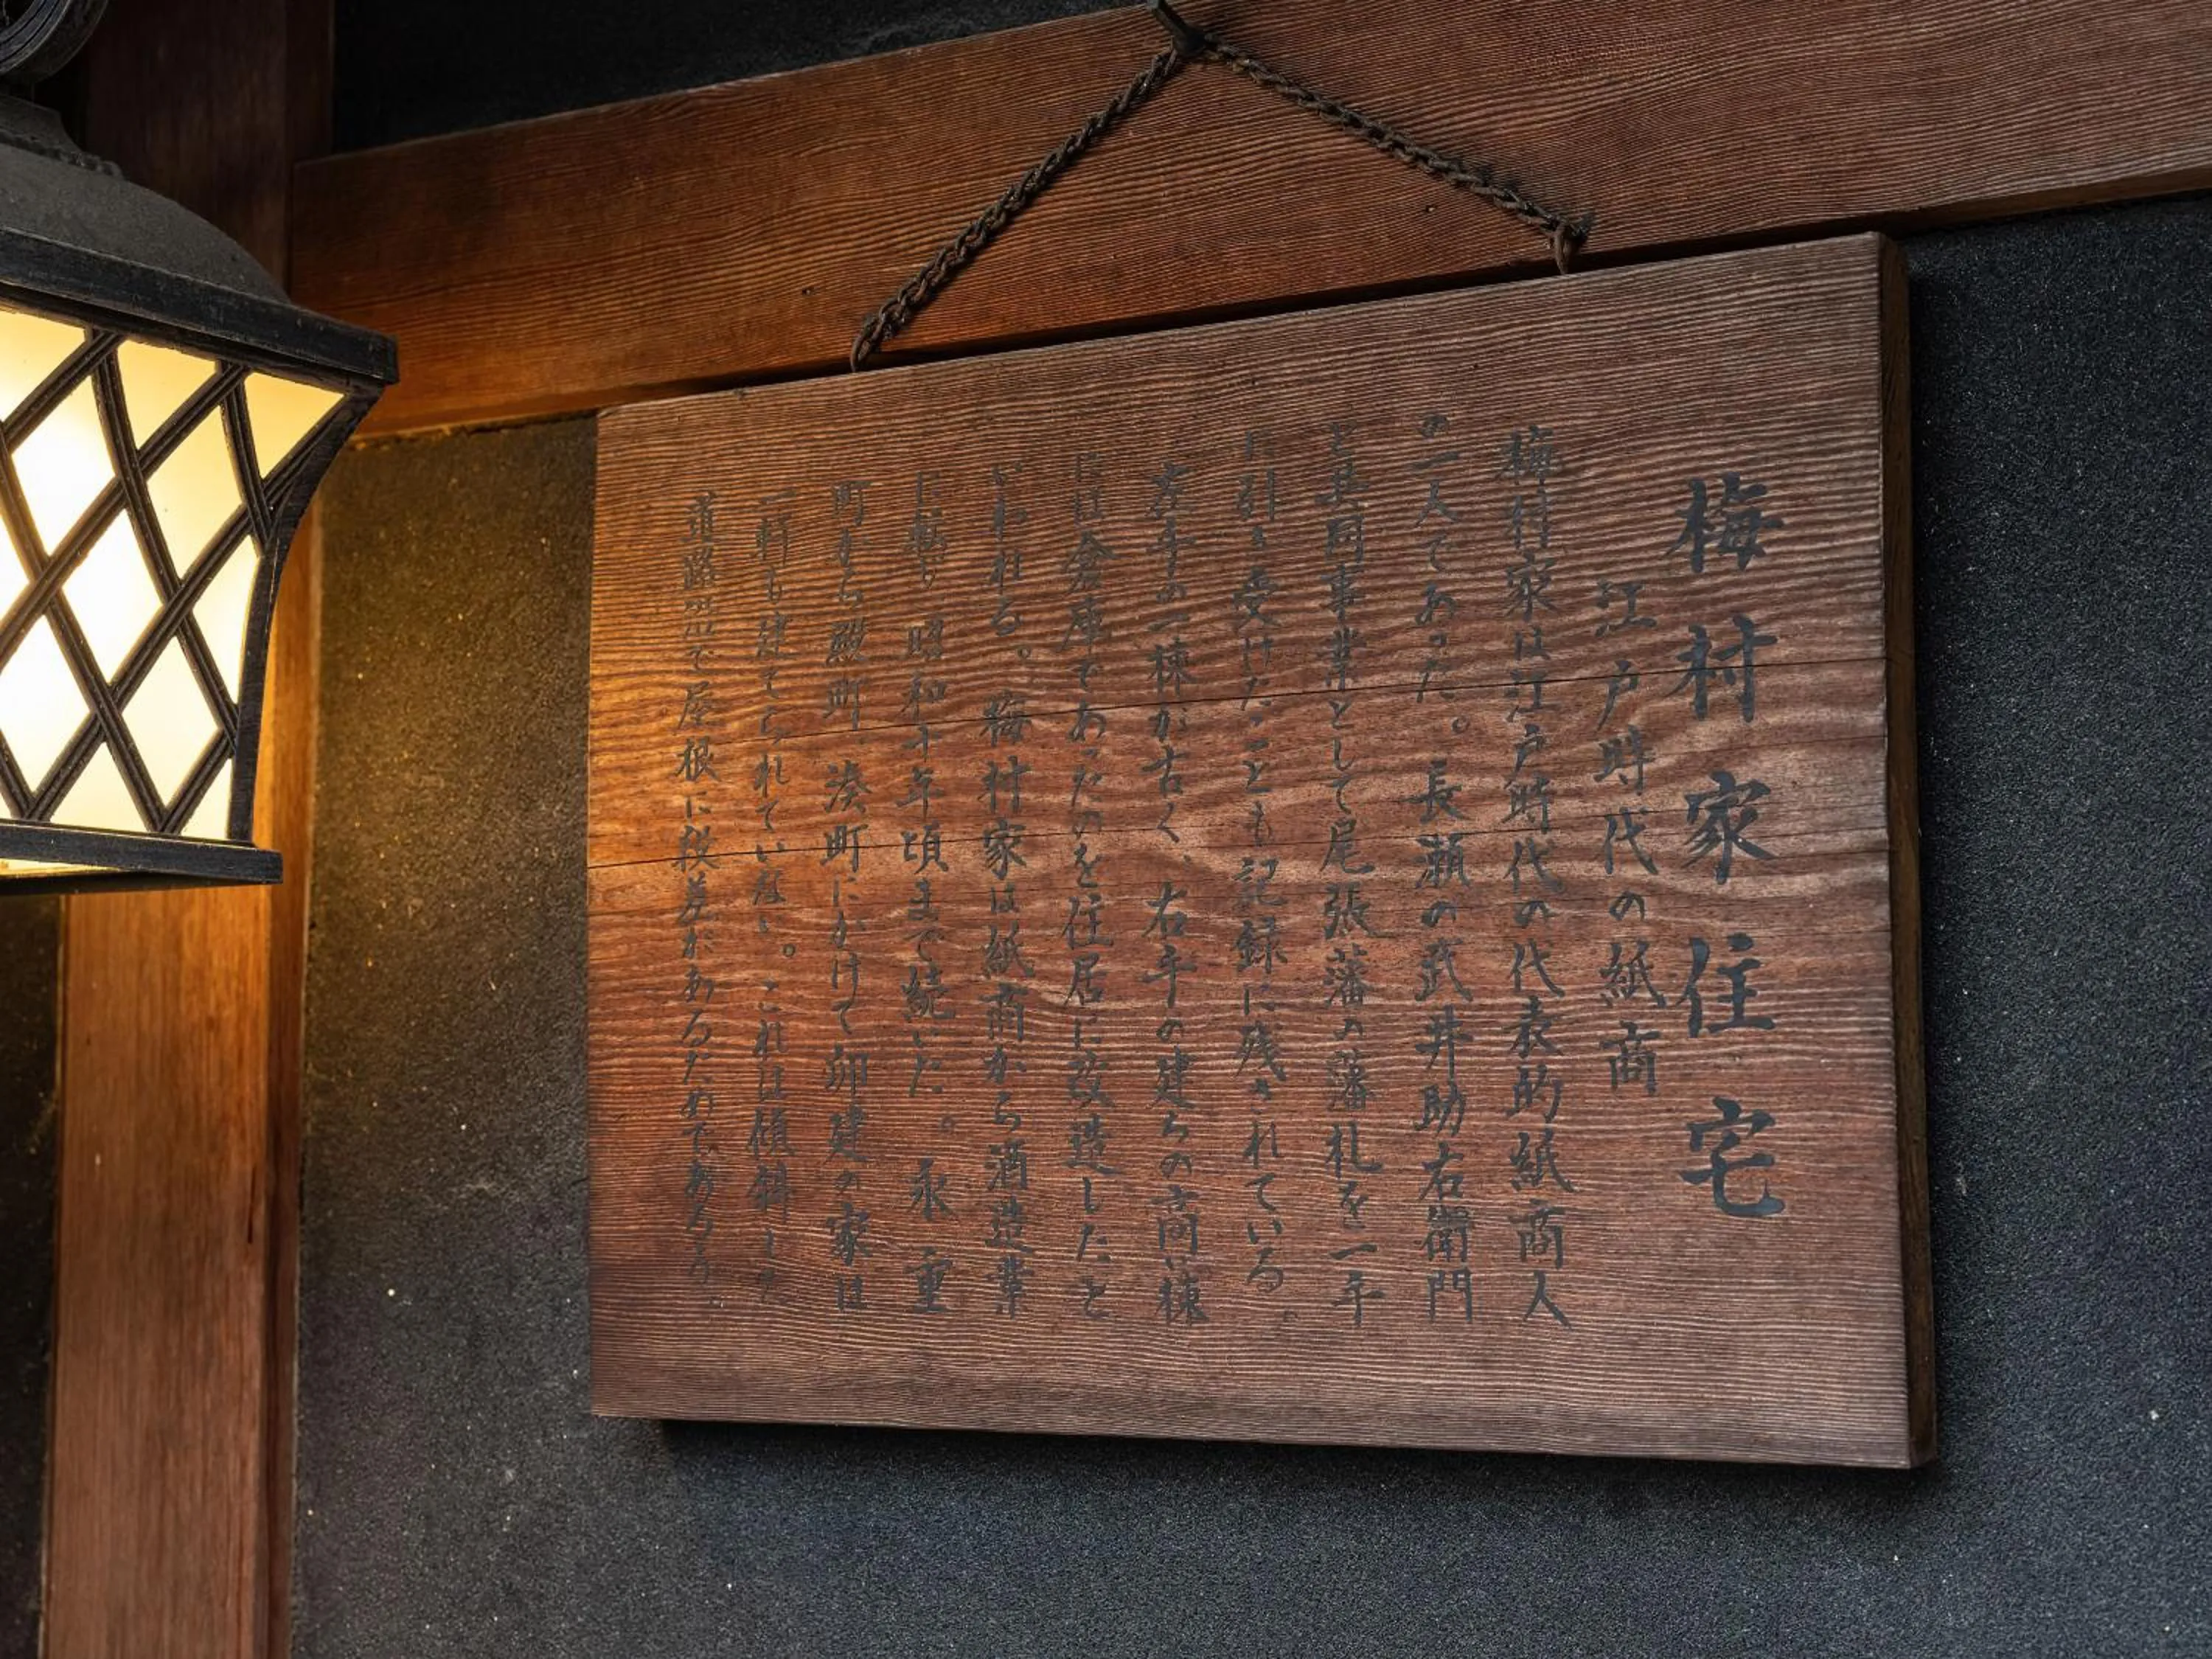 梅村家住宅
江戸時代の紙商
梅村家は江戸時代の代表的紙商人
の一人であった。長瀬の武井助右衛門
と共同事業として尾張藩の藩札を一手
に引き受けたことも記録に残されている。
左手の一棟が古く、右手の建ちの高い棟
には倉庫であったのを住居に改造したと
いわれる。梅村家は紙商から酒造業
に転じ昭和十年頃まで続いた。永重
町から殿町、湊町にかけて卯建の家は
一軒も建てられていない。これは傾斜した
道路沿で屋根に段差があるためであろう。